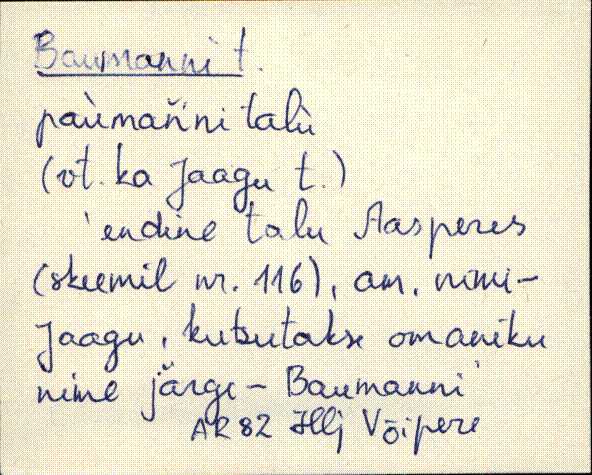 Baumanni t.
paùmaǹ'ni talù
(vt. ka Jaagu t.)
'endine talu Aasperes
(skeemil nr. 116), am. nimi-
Jaagu, kutsutakse omaniku
nime järgi - Baumanni'
AR 82 Hlj Võipere